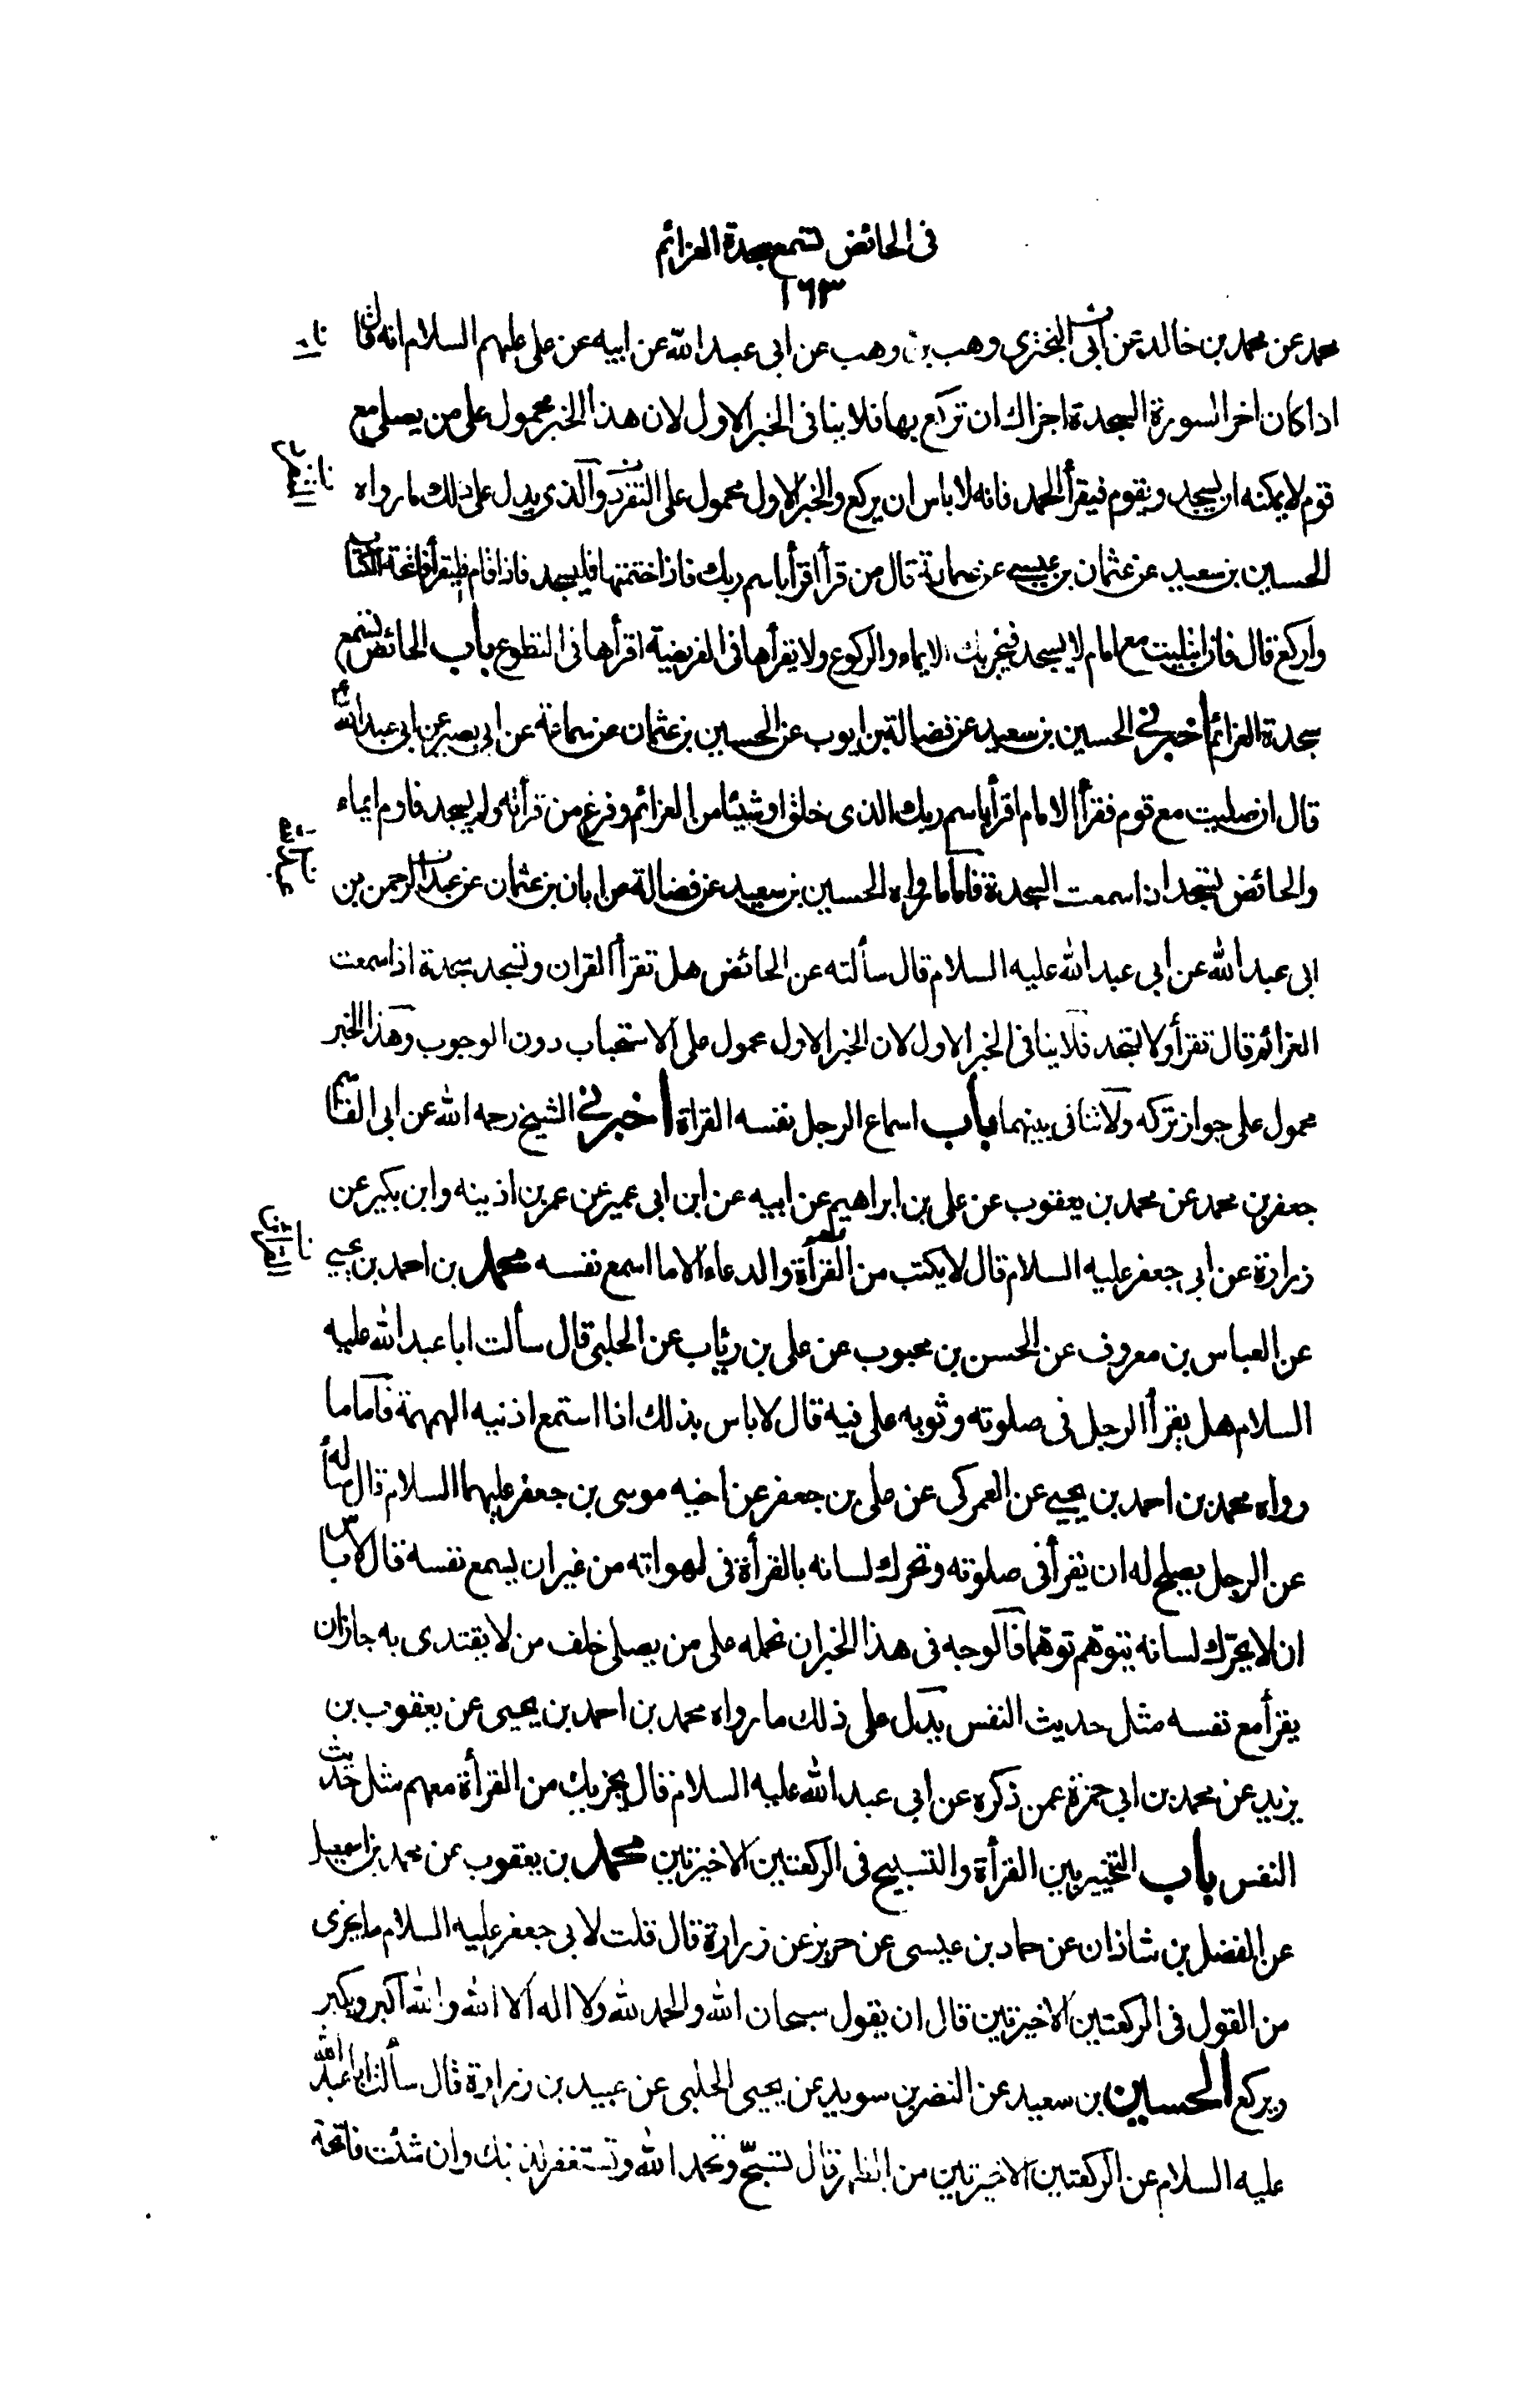 فى الحائض تسمع سجدة العزائم
١٦٣
محمد عن محمد بن خالد عن ابى البخترى وهب بن وهب عن ابى عبد الله عن ابيه عن على عليهم السلام انه قال
اذا كان اخر السورة السجدة اجزاك ان تركع بها فلا ينافى الخبر الاول لان هذا الخبر محمول على من يصلى مع
قوم لا يمكنه ان يسجد ويقوم فيقرأ الحمد فانه لا باس ان يركع والخبر الاول محمول على التفرد والذى يدل على ذلك ما رواه
الحسين بن سعيد عن عثمان بن عيسى عن سماعة قال من قرأ اقرأ باسم ربك فاذا ختمتها فليسجد فاذا قام فليقرأ فاتحة الكتاب
واركع قال فاذا ابتليت مع امام لا يسجد فيجزيك الايماء والركوع ولا يقرأها فى الفريضة اقرأها فى التطوع باب الحائض تسمع
سجدة العزائم اخبرنى الحسين بن سعيد عن فضالة بن ايوب عن الحسين بن عثمان عن سماعة عن ابى بصير عن ابى عبد الله
قال ان صليت مع قوم فقرأ الامام اقرأ باسم ربك الذى خلق او شيئا من العزائم وفرغ من قرأته ولم يسجد فاوم ايماء
والحائض تسجد اذا سمعت السجدة فاما ما رواه الحسين بن سعيد عن فضالة عن ابان بن عثمان عن عبد الرحمن بن
ابى عبد الله عن ابى عبد الله عليه السلام قال سألته عن الحائض هل تقرأ القران وتسجد سجدة اذا سمعت
العزائم قال تقرأ ولا تسجد فلا ينافى الخبر الاول لان الخبر الاول محمول على الاستحباب دون الوجوب وهذا الخبر
محمول على جواز تركه ولا تنافى بينهما باب اسماع الرجل نفسه القراة اخبرنى الشيخ رحمه الله عن ابى القاسم
جعفر بن محمد عن محمد بن يعقوب عن على بن ابراهيم عن ابيه عن ابن ابى عمير عن عمر بن اذينه وابن بكير عن
زرارة عن ابى جعفر عليه السلام قال لا يكتب من القرأة والدعاء الا ما اسمع نفسه محمد بن احمد بن يحيى
عن العباس بن معروف عن الحسن بن محبوب عن على بن رئاب عن الحلبى قال سألت ابا عبد الله عليه
السلام هل يقرأ الرجل فى صلوته وثوبه على فيه قال لا باس بذلك اذا استمع اذنيه الهمهمة فاما ما
رواه محمد بن احمد بن يحيى عن العمركى عن على بن جعفر عن اخيه موسى بن جعفر عليهما السلام قال سألته
عن الرجل يصلح له ان يقرأ فى صلوته وتحرك لسانه بالقرأة فى لهواته من غير ان يسمع نفسه قال لا باس
ان لا يحرك لسانه يتوهم توهما فالوجه فى هذا الخبر ان نحمله على من يصلى خلف من لا يقتدى به جاز ان
يقرأ مع نفسه مثل حديث النفس يدل على ذلك ما رواه محمد بن احمد بن يحيى عن يعقوب بن
يزيد عن محمد بن ابى حمزة عمن ذكره عن ابى عبد الله عليه السلام قال يجزيك من القرأة معهم مثل حديث
النفس باب التخيير بين القرأة والتسبيح فى الركعتين الاخيرتين محمد بن يعقوب عن محمد بن اسمعيل
عن الفضل بن شاذان عن حماد بن عيسى عن حريز عن زرارة قال قلت لابى جعفر عليه السلام ما يجزى
من القول فى الركعتين الاخيرتين قال ان يقول سبحان الله والحمد لله ولا اله الا الله والله اكبر ويكبر
ويركع الحسين بن سعيد عن النضر بن سويد عن يحيى الحلبى عن عبيد بن زرارة قال سألت ابا عبد الله
عليه السلام عن الركعتين الاخيرتين من الظهر قال تسبح وتحمد الله وتستغفر لذنبك وان شئت فاتحة